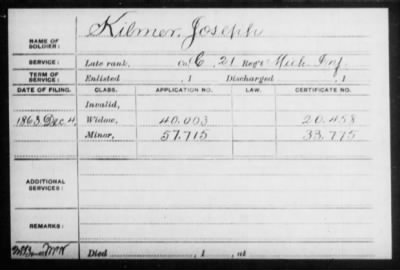 NAME OF SOLDIER: Kilmer, Joseph
SERVICE: Late rank, Co. C, 21 Reg't Mich. Inf.
TERM OF SERVICE: Enlisted , 1 Discharged , 1
DATE OF FILING. CLASS. APPLICATION NO. LAW. CERTIFICATE NO.
Invalid,
1863 Dec 4. Widow, 40.003 20.458
Minor, 57.715 33.775
ADDITIONAL SERVICES:
REMARKS:
Died , 1 , at